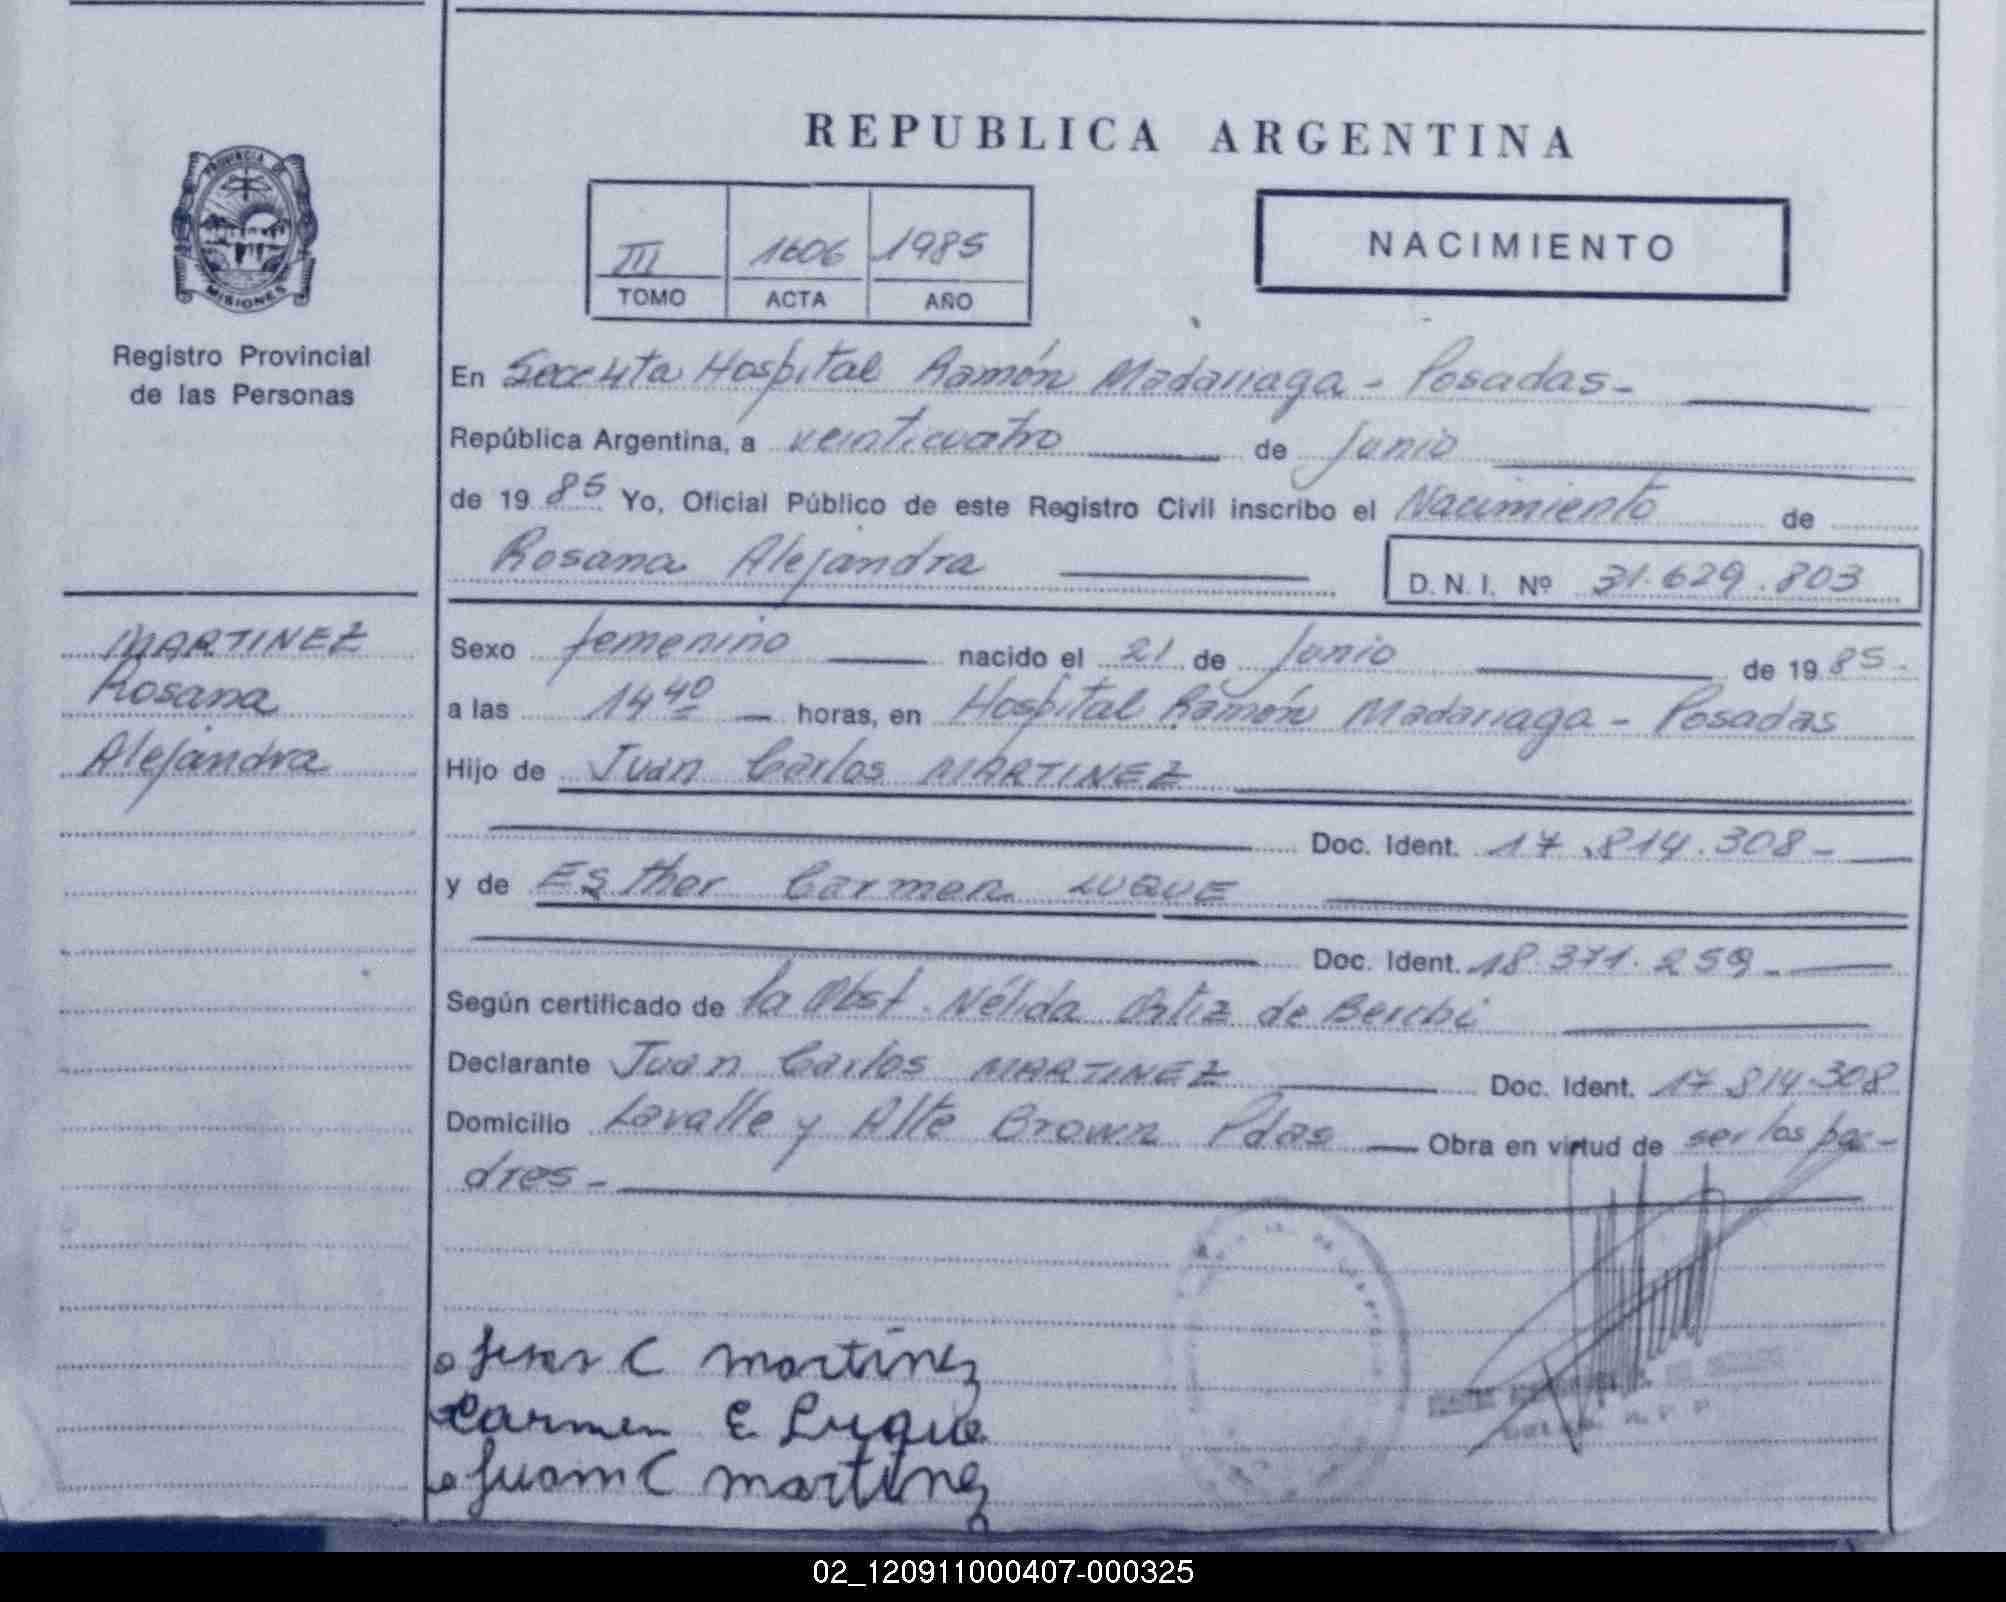 REPUBLICA ARGENTINA
PROVINCIA DE
MISIONES
Registro Provincial
de las Personas
III 1606 1985
TOMO ACTA AÑO
NACIMIENTO
En Secc 4ta Hospital Ramón Madariaga - Posadas -
República Argentina, a veinticuatro de Junio
de 19 85 Yo, Oficial Público de este Registro Civil inscribo el Nacimiento de
Rosana Alejandra D. N. I. Nº 31.629.803
MARTINEZ
Rosana
Alejandra
Sexo femenino nacido el 21 de Junio de 19 85.
a las 14 40 horas, en Hospital Ramón Madariaga - Posadas
Hijo de Juan Carlos MARTINEZ
Doc. Ident. 17.814.308 -
y de Esther Carmen LUQUE
Doc. Ident. 18.371.259 -
Según certificado de la Obst. Nélida Ortiz de
Declarante Juan Carlos MARTINEZ Doc. Ident. 17.814.308
Domicilio Lavalle y Alte Brown Pdas Obra en virtud de ser los pa-
dres -
Juan C martinez
Carmen E Luque
Juan C martinez
02_120911000407-000325